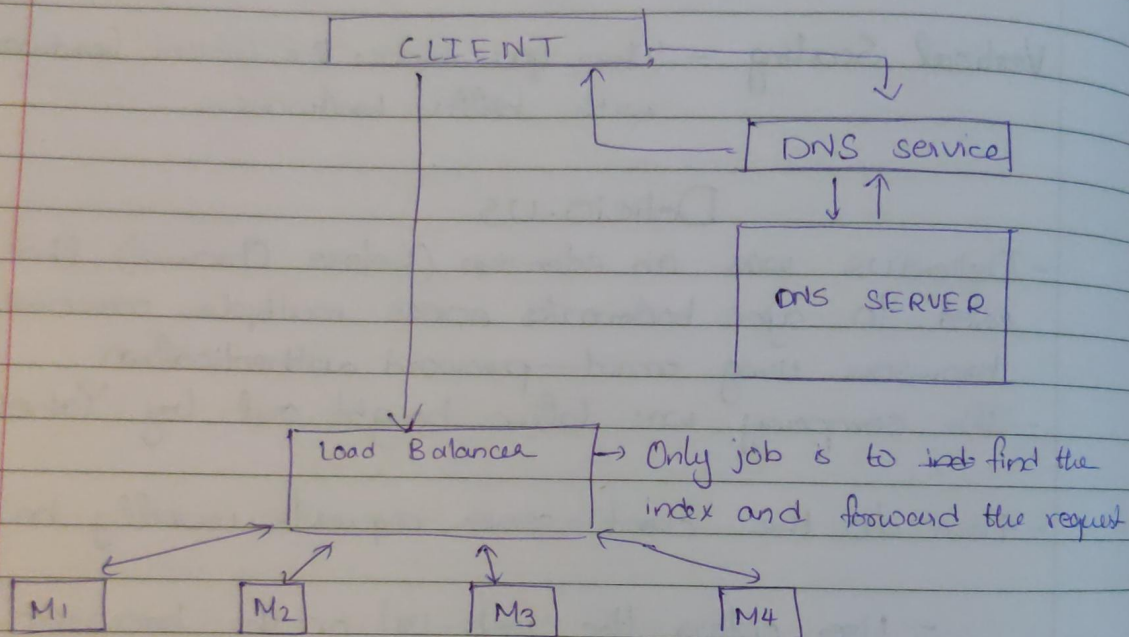 CLIENT
DNS service
DNS SERVER
Load Balancer
→ Only job is to find the
index and forward the request
M1 M2 M3 M4